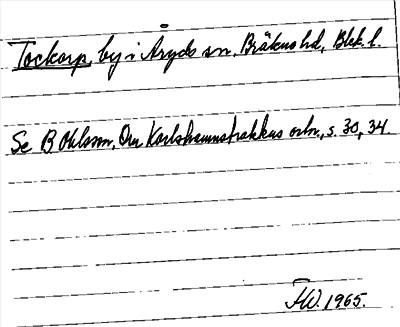 Tockarp, by i Åryds sn, Bräkne hd, Blek. l.
Se B Ohlsson, Om Karlshamnstraktens ortn., s. 30, 34
FW. 1965.